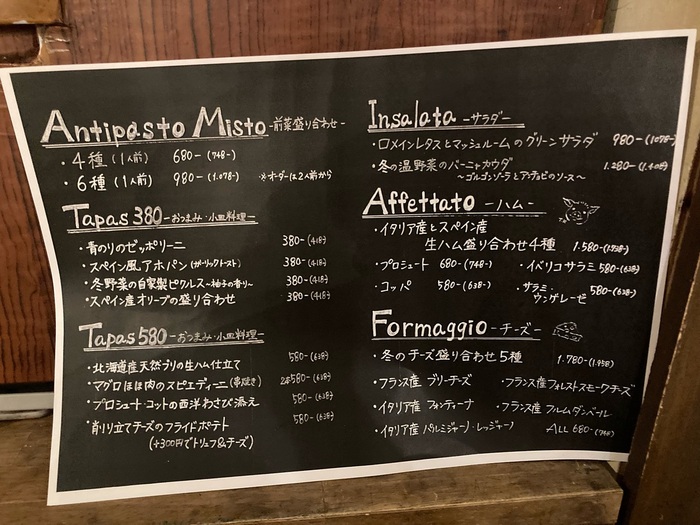 Antipasto Misto -前菜盛り合わせ-
・4種(1人前) 680-(748-)
・6種(1人前) 980-(1.078-) ※オーダーは2人前から
Tapas 380 -おつまみ・小皿料理-
・青のりのゼッポリーニ 380-(418-)
・スペイン風アホパン(ガーリックトースト) 380-(418-)
・冬野菜の自家製ピクルス~柚子の香り~ 380-(418-)
・スペイン産オリーブの盛り合わせ 380-(418-)
Tapas 580 -おつまみ・小皿料理-
・北海道産天然ブリの生ハム仕立て 580-(638-)
・マグロほほ肉のスピエディーニ(串焼き) 2本580-(638-)
・プロシュート・コットの西洋わさび添え 580-(638-)
・削り立てチーズのフライドポテト 580-(638-)
(+300円でトリュフ&チーズ)
Insalata -サラダ-
・ロメインレタスとマッシュルームのグリーンサラダ 980-(1078-)
・冬の温野菜のバーニャカウダ 1.280-(1.408-)
~ゴルゴンゾーラとアンチョビのソース~
Affettato -ハム-
・イタリア産とスペイン産
生ハム盛り合わせ4種 1.580-(1738-)
・プロシュート 680-(748-) ・イベリコサラミ 580-(638-)
・コッパ 580-(638-) ・サラミ・ウンゲレーゼ 580-(638-)
Formaggio -チーズ-
・冬のチーズ盛り合わせ5種 1.780-(1.958-)
・フランス産 ブリーチーズ ・フランス産フォレストスモークチーズ
・イタリア産 フォンティーナ ・フランス産 フルムダンベール
・イタリア産 パルミジャーノ・レッジャーノ ALL 680-(748-)